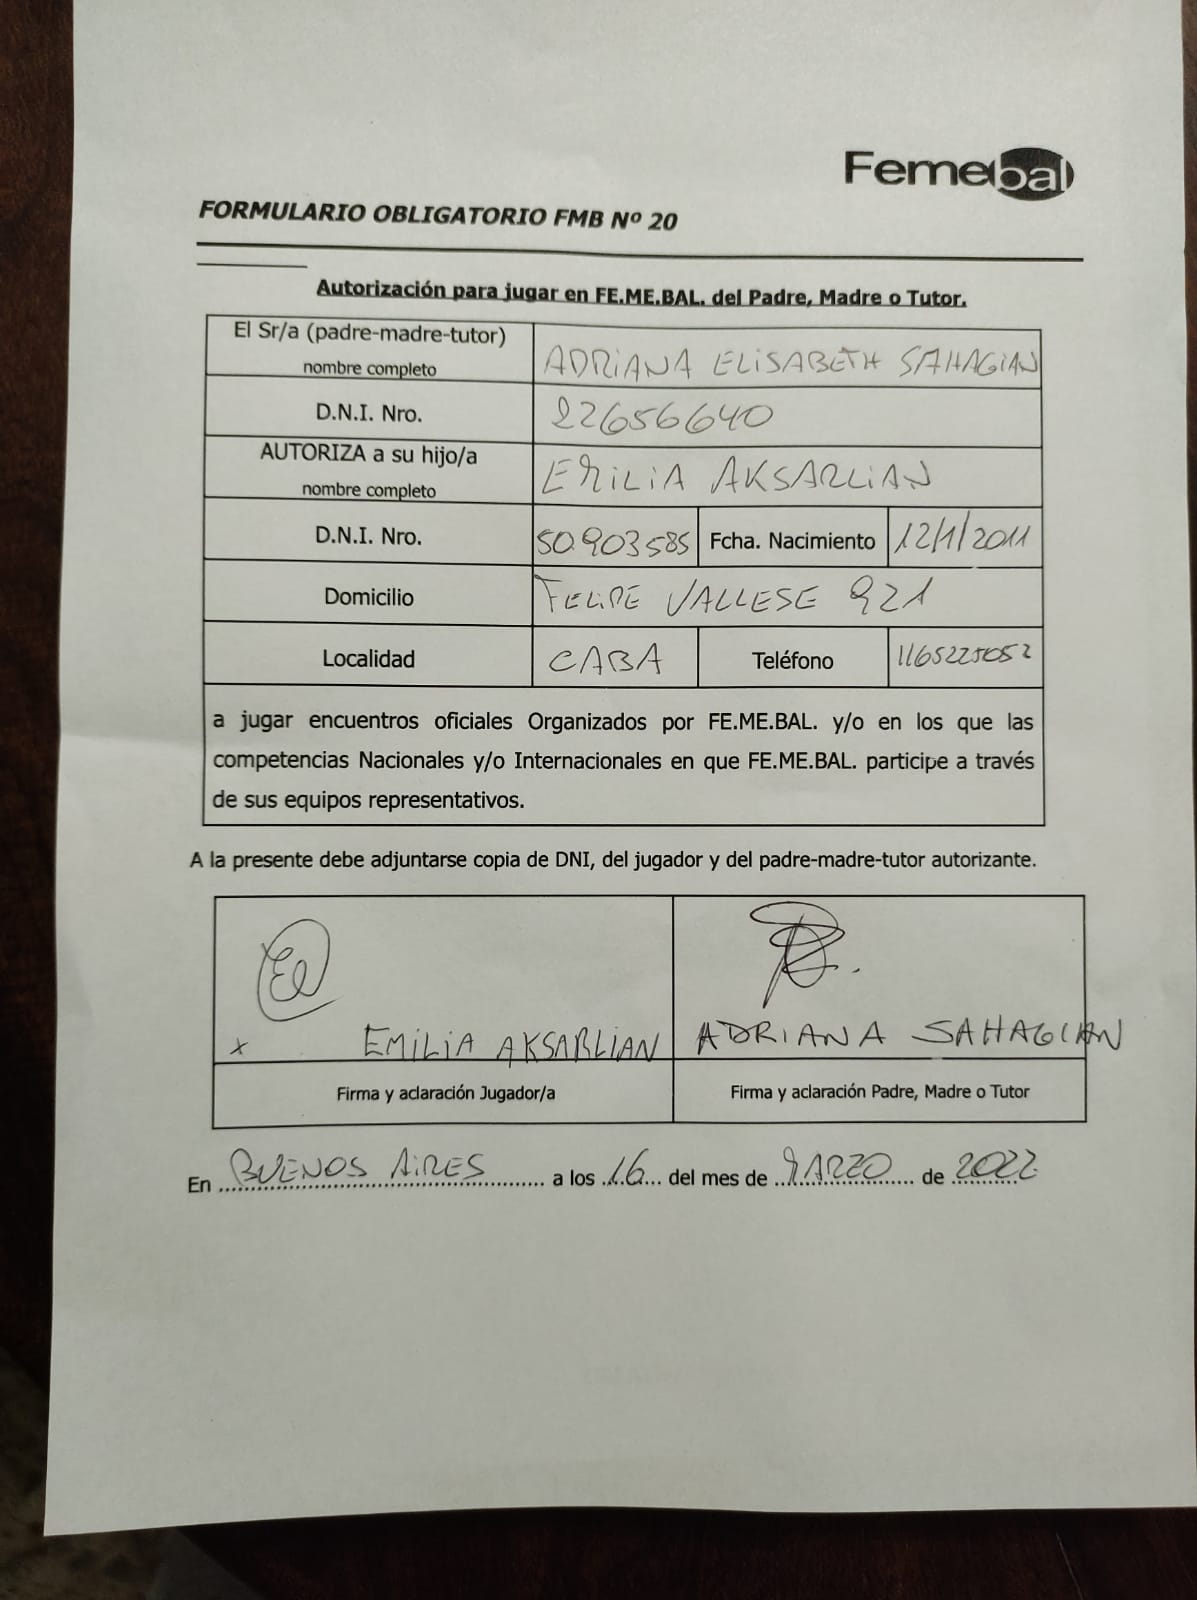 Femebal
FORMULARIO OBLIGATORIO FMB Nº 20
Autorización para jugar en FE.ME.BAL. del Padre, Madre o Tutor.
El Sr/a (padre-madre-tutor)
nombre completo
ADRIANA ELISABETH SAHAGIAN
D.N.I. Nro. 22656640
AUTORIZA a su hijo/a
nombre completo
EMILIA AKSARLIAN
D.N.I. Nro. 50.903585 Fcha. Nacimiento 12/1/2011
Domicilio FELIPE VALLESE 921
Localidad CABA Teléfono 1165225052
a jugar encuentros oficiales Organizados por FE.ME.BAL. y/o en los que las
competencias Nacionales y/o Internacionales en que FE.ME.BAL. participe a través
de sus equipos representativos.
A la presente debe adjuntarse copia de DNI, del jugador y del padre-madre-tutor autorizante.
x EMILIA AKSARLIAN ADRIANA SAHAGIAN
Firma y aclaración Jugador/a Firma y aclaración Padre, Madre o Tutor
En BUENOS AIRES a los 16 del mes de MARZO de 2022